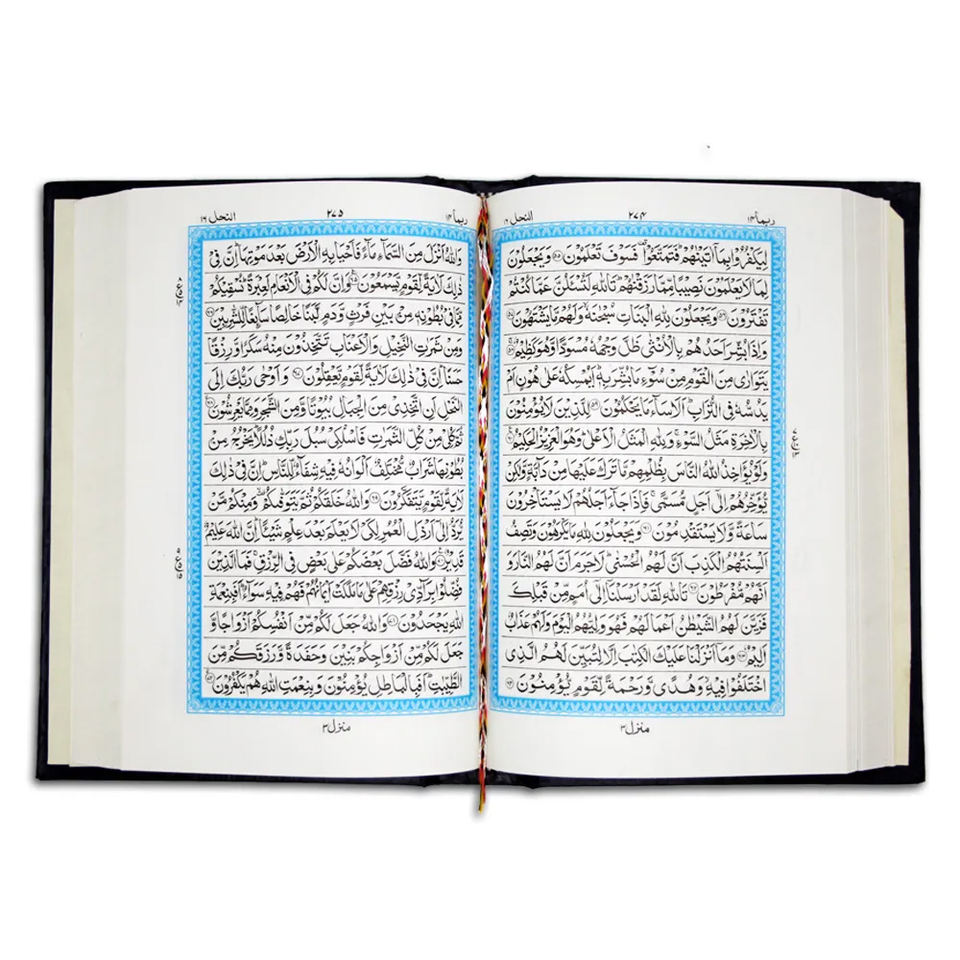 ربما ١٤
٢٧٤
النحل ١٦
لِيَكْفُرُوْا بِمَاۤ اٰتَيْنٰهُمْ ؕ فَتَمَتَّعُوْا ۫ فَسَوْفَ تَعْلَمُوْنَ ﴿۵۵﴾ وَيَجْعَلُوْنَ
لِمَا لَا يَعْلَمُوْنَ نَصِيْبًا مِّمَّا رَزَقْنٰهُمْ ؕ تَاللّٰهِ لَتُسْـَٔلُنَّ عَمَّا كُنْتُمْ
تَفْتَرُوْنَ ﴿۵۶﴾ وَيَجْعَلُوْنَ لِلّٰهِ الْبَنٰتِ سُبْحٰنَهٗ ۙ وَلَهُمْ مَّا يَشْتَهُوْنَ ﴿۵۷﴾
وَاِذَا بُشِّرَ اَحَدُهُمْ بِالْاُنْثٰى ظَلَّ وَجْهُهٗ مُسْوَدًّا وَّهُوَ كَظِيْمٌ ﴿۵۸﴾
يَتَوَارٰى مِنَ الْقَوْمِ مِنْ سُوْٓءِ مَا بُشِّرَ بِهٖ ؕ اَيُمْسِكُهٗ عَلٰى هُوْنٍ اَمْ
يَدُسُّهٗ فِى التُّرَابِ ؕ اَلَا سَآءَ مَا يَحْكُمُوْنَ ﴿۵۹﴾ لِلَّذِيْنَ لَا يُؤْمِنُوْنَ
بِالْاٰخِرَةِ مَثَلُ السَّوْءِ ۚ وَلِلّٰهِ الْمَثَلُ الْاَعْلٰى ؕ وَهُوَ الْعَزِيْزُ الْحَكِيْمُ ﴿۶۰﴾
وَلَوْ يُؤَاخِذُ اللّٰهُ النَّاسَ بِظُلْمِهِمْ مَّا تَرَكَ عَلَيْهَا مِنْ دَآبَّةٍ وَّلٰكِنْ
يُّؤَخِّرُهُمْ اِلٰٓى اَجَلٍ مُّسَمًّى ۚ فَاِذَا جَآءَ اَجَلُهُمْ لَا يَسْتَاْخِرُوْنَ
سَاعَةً وَّلَا يَسْتَقْدِمُوْنَ ﴿۶۱﴾ وَيَجْعَلُوْنَ لِلّٰهِ مَا يَكْرَهُوْنَ وَتَصِفُ
اَلْسِنَتُهُمُ الْكَذِبَ اَنَّ لَهُمُ الْحُسْنٰى ؕ لَا جَرَمَ اَنَّ لَهُمُ النَّارَ وَ
اَنَّهُمْ مُّفْرَطُوْنَ ﴿۶۲﴾ تَاللّٰهِ لَقَدْ اَرْسَلْنَاۤ اِلٰٓى اُمَمٍ مِّنْ قَبْلِكَ
فَزَيَّنَ لَهُمُ الشَّيْطٰنُ اَعْمَالَهُمْ فَهُوَ وَلِيُّهُمُ الْيَوْمَ وَلَهُمْ عَذَابٌ
اَلِيْمٌ ﴿۶۳﴾ وَمَاۤ اَنْزَلْنَا عَلَيْكَ الْكِتٰبَ اِلَّا لِتُبَيِّنَ لَهُمُ الَّذِى
اخْتَلَفُوْا فِيْهِ ۙ وَهُدًى وَّرَحْمَةً لِّقَوْمٍ يُّؤْمِنُوْنَ ﴿۶۴﴾
منزل ٣
٢٧٥
النحل ١٦
ربما ١٤
وَاللّٰهُ اَنْزَلَ مِنَ السَّمَآءِ مَآءً فَاَحْيَا بِهِ الْاَرْضَ بَعْدَ مَوْتِهَا ؕ اِنَّ فِىْ
ذٰلِكَ لَاٰيَةً لِّقَوْمٍ يَّسْمَعُوْنَ ﴿۶۵﴾ وَاِنَّ لَكُمْ فِى الْاَنْعَامِ لَعِبْرَةً ؕ نُسْقِيْكُمْ
مِّمَّا فِىْ بُطُوْنِهٖ مِنْۢ بَيْنِ فَرْثٍ وَّدَمٍ لَّبَنًا خَالِصًا سَآئِغًا لِّلشّٰرِبِيْنَ ﴿۶۶﴾
وَمِنْ ثَمَرٰتِ النَّخِيْلِ وَالْاَعْنَابِ تَتَّخِذُوْنَ مِنْهُ سَكَرًا وَّرِزْقًا
حَسَنًا ؕ اِنَّ فِىْ ذٰلِكَ لَاٰيَةً لِّقَوْمٍ يَّعْقِلُوْنَ ﴿۶۷﴾ وَاَوْحٰى رَبُّكَ اِلَى
النَّحْلِ اَنِ اتَّخِذِىْ مِنَ الْجِبَالِ بُيُوْتًا وَّمِنَ الشَّجَرِ وَمِمَّا يَعْرِشُوْنَ ﴿۶۸﴾
ثُمَّ كُلِىْ مِنْ كُلِّ الثَّمَرٰتِ فَاسْلُكِىْ سُبُلَ رَبِّكِ ذُلُلًا ؕ يَخْرُجُ مِنْۢ
بُطُوْنِهَا شَرَابٌ مُّخْتَلِفٌ اَلْوَانُهٗ فِيْهِ شِفَآءٌ لِّلنَّاسِ ؕ اِنَّ فِىْ ذٰلِكَ
لَاٰيَةً لِّقَوْمٍ يَّتَفَكَّرُوْنَ ﴿۶۹﴾ وَاللّٰهُ خَلَقَكُمْ ثُمَّ يَتَوَفّٰىكُمْ ۙ وَمِنْكُمْ مَّنْ
يُّرَدُّ اِلٰٓى اَرْذَلِ الْعُمُرِ لِكَىْ لَا يَعْلَمَ بَعْدَ عِلْمٍ شَيْـًٔا ؕ اِنَّ اللّٰهَ عَلِيْمٌ
قَدِيْرٌ ﴿۷۰﴾ وَاللّٰهُ فَضَّلَ بَعْضَكُمْ عَلٰى بَعْضٍ فِى الرِّزْقِ ۚ فَمَا الَّذِيْنَ
فُضِّلُوْا بِرَآدِّىْ رِزْقِهِمْ عَلٰى مَا مَلَكَتْ اَيْمَانُهُمْ فَهُمْ فِيْهِ سَوَآءٌ ؕ اَفَبِنِعْمَةِ
اللّٰهِ يَجْحَدُوْنَ ﴿۷۱﴾ وَاللّٰهُ جَعَلَ لَكُمْ مِّنْ اَنْفُسِكُمْ اَزْوَاجًا وَّ
جَعَلَ لَكُمْ مِّنْ اَزْوَاجِكُمْ بَنِيْنَ وَحَفَدَةً وَّرَزَقَكُمْ مِّنَ
الطَّيِّبٰتِ ؕ اَفَبِالْبَاطِلِ يُؤْمِنُوْنَ وَبِنِعْمَتِ اللّٰهِ هُمْ يَكْفُرُوْنَ ﴿۷۲﴾
منزل ٣